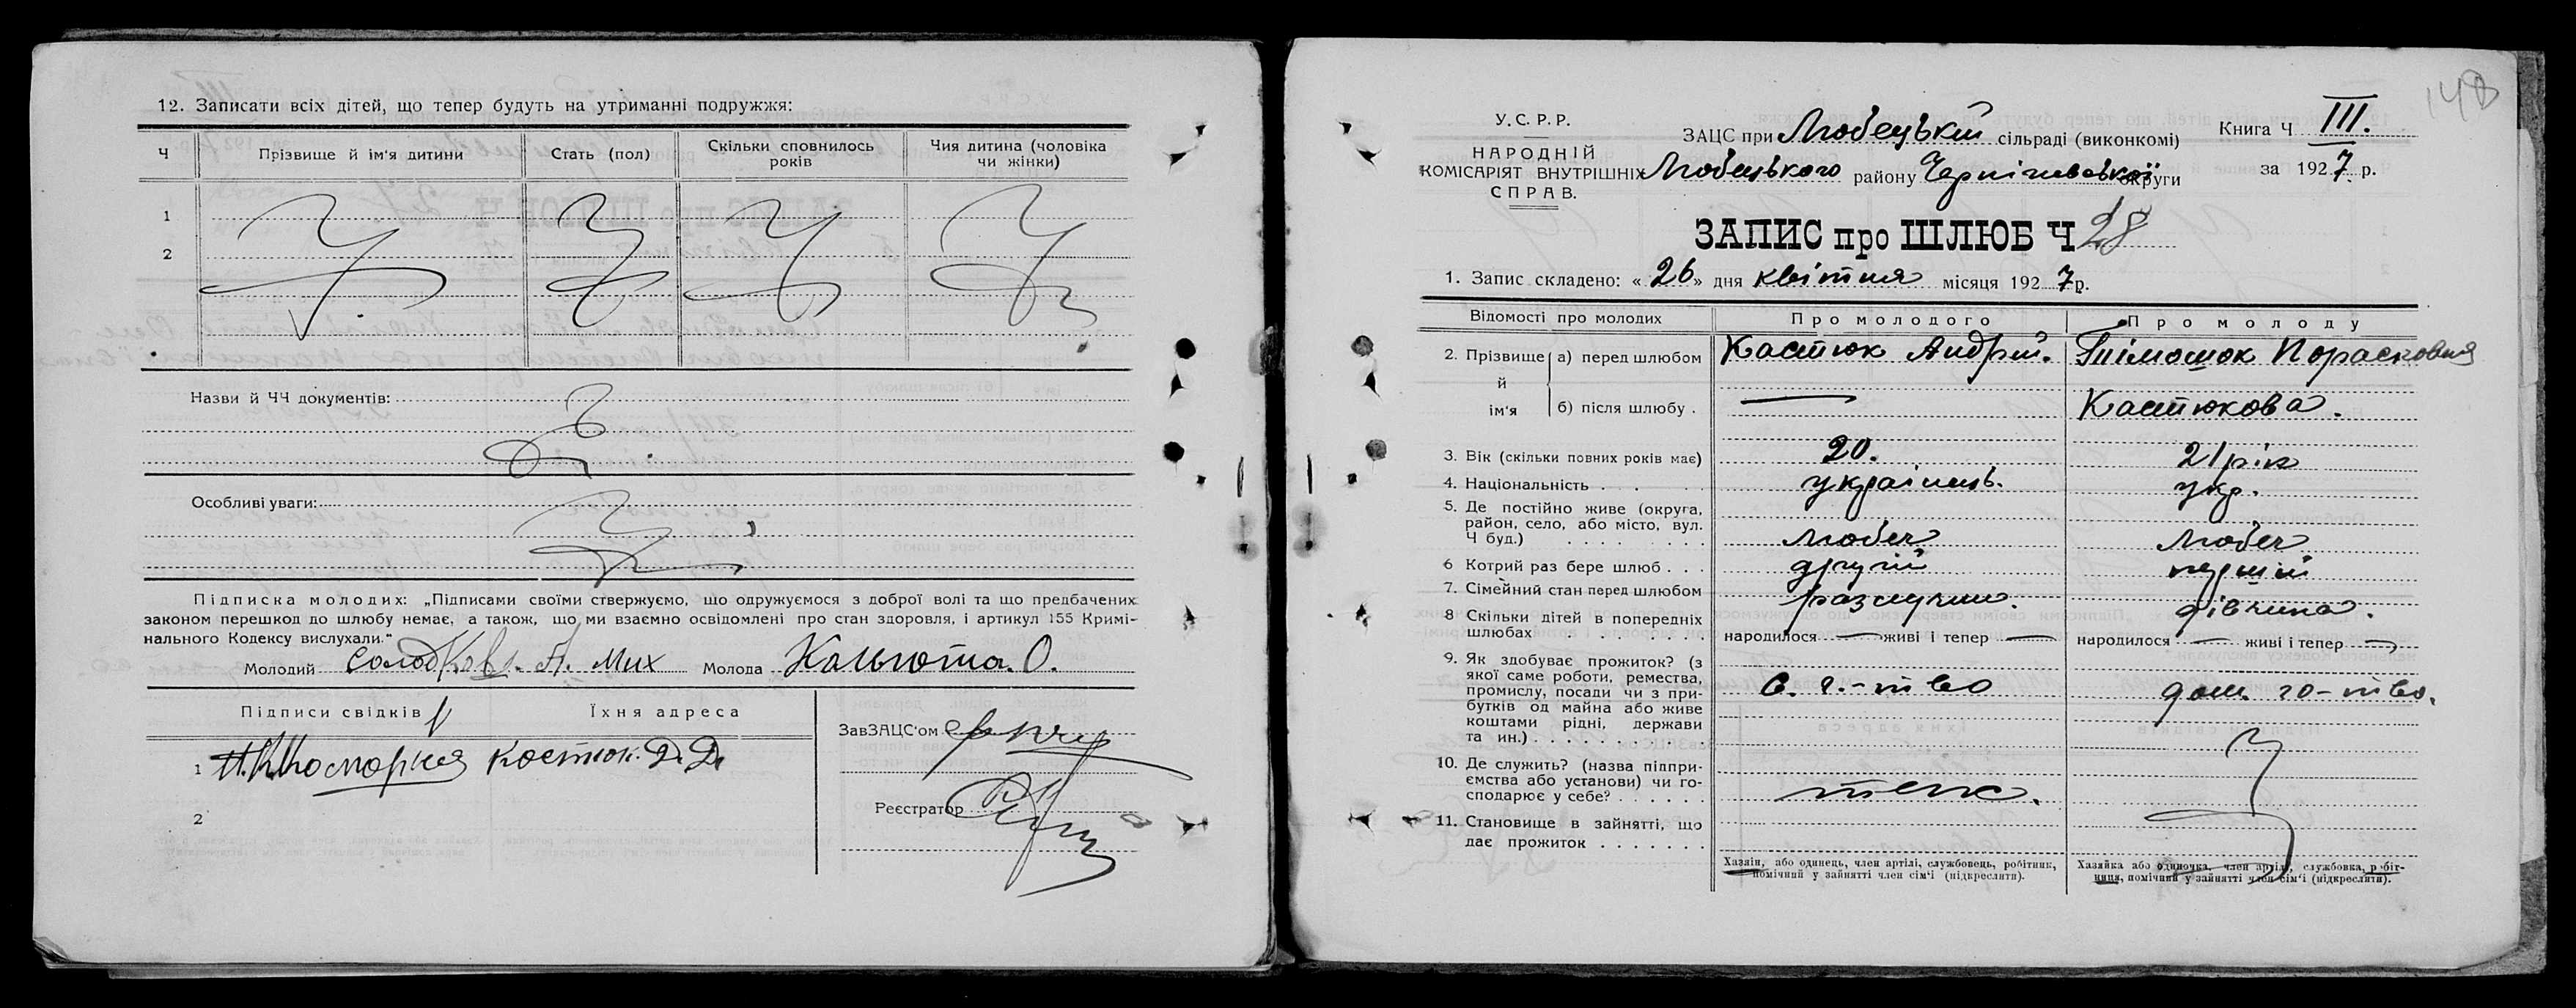 12. Записати всіх дітей, що тепер будуть на утриманні подружжя:
Ч Прізвище й ім'я дитини Стать (пол) Скільки сповнилось років Чия дитина (чоловіка чи жінки)
1
2
Назви й ЧЧ документів:
Особливі уваги:
Підписка молодих: „Підписами своїми ствержуємо, що одружуємося з доброї волі та що предбачених
законом перешкод до шлюбу немає, а також, що ми взаємно освідомлені про стан здоровля, і артикул 155 Кримі-
нального Кодексу вислухали."
Молодий А. Мих Молода Кальюта. О.
Підписи свідків Їхня адреса
1 Костюк. Д. Д.
2
ЗавЗАЦС'ом
Реєстратор
148
У.С.Р.Р.
НАРОДНІЙ
КОМІСАРІЯТ ВНУТРІШНІХ
СПРАВ.
ЗАЦС при Любецькій сільраді (виконкомі)
Любецького району Чернігивської округи
Книга Ч III.
за 1927 р.
ЗАПИС про ШЛЮБ Ч 28
1. Запис складено: « 26 » дня квітня місяця 1927 р.
Відомості про молодих Про молодого Про молоду
2. Прізвище й ім'я а) перед шлюбом Кастюк Андрій. Тімошок Порасковия
б) після шлюбу . — Кастюкова.
3. Вік (скільки повних років має) 20. 21 рік
4. Національність . . . українець. укр.
5. Де постійно живе (округа,
район, село, або місто, вул.
Ч буд.) . . . . . Любеч Любеч
6 Котрий раз бере шлюб . . . другій першій
7. Сімейний стан перед шлюбом дівчина.
8 Скільки дітей в попередніх
шлюбах . . . . . народилося — живі і тепер — народилося — живі і тепер —
9. Як здобуває прожиток? (з
якої саме роботи, ремества,
промислу, посади чи з при-
бутків од майна або живе
коштами рідні, держави
та ин.) . . . . . с. г.-тво дом. го-тво.
10. Де служить? (назва підпри-
ємства або установи) чи го-
сподарює у себе? . . . . . теж.
11. Становище в зайнятті, що
дає прожиток . . . . . . .
Хазяін, або одинець, член артілі, службовець, робітник,
помічний у зайнятті член сім'і (підкреслити).
Хазяйка або одиночка, член артілі, службовка, робіт-
ниця, помічний у зайнятті член сім'і (підкреслити).